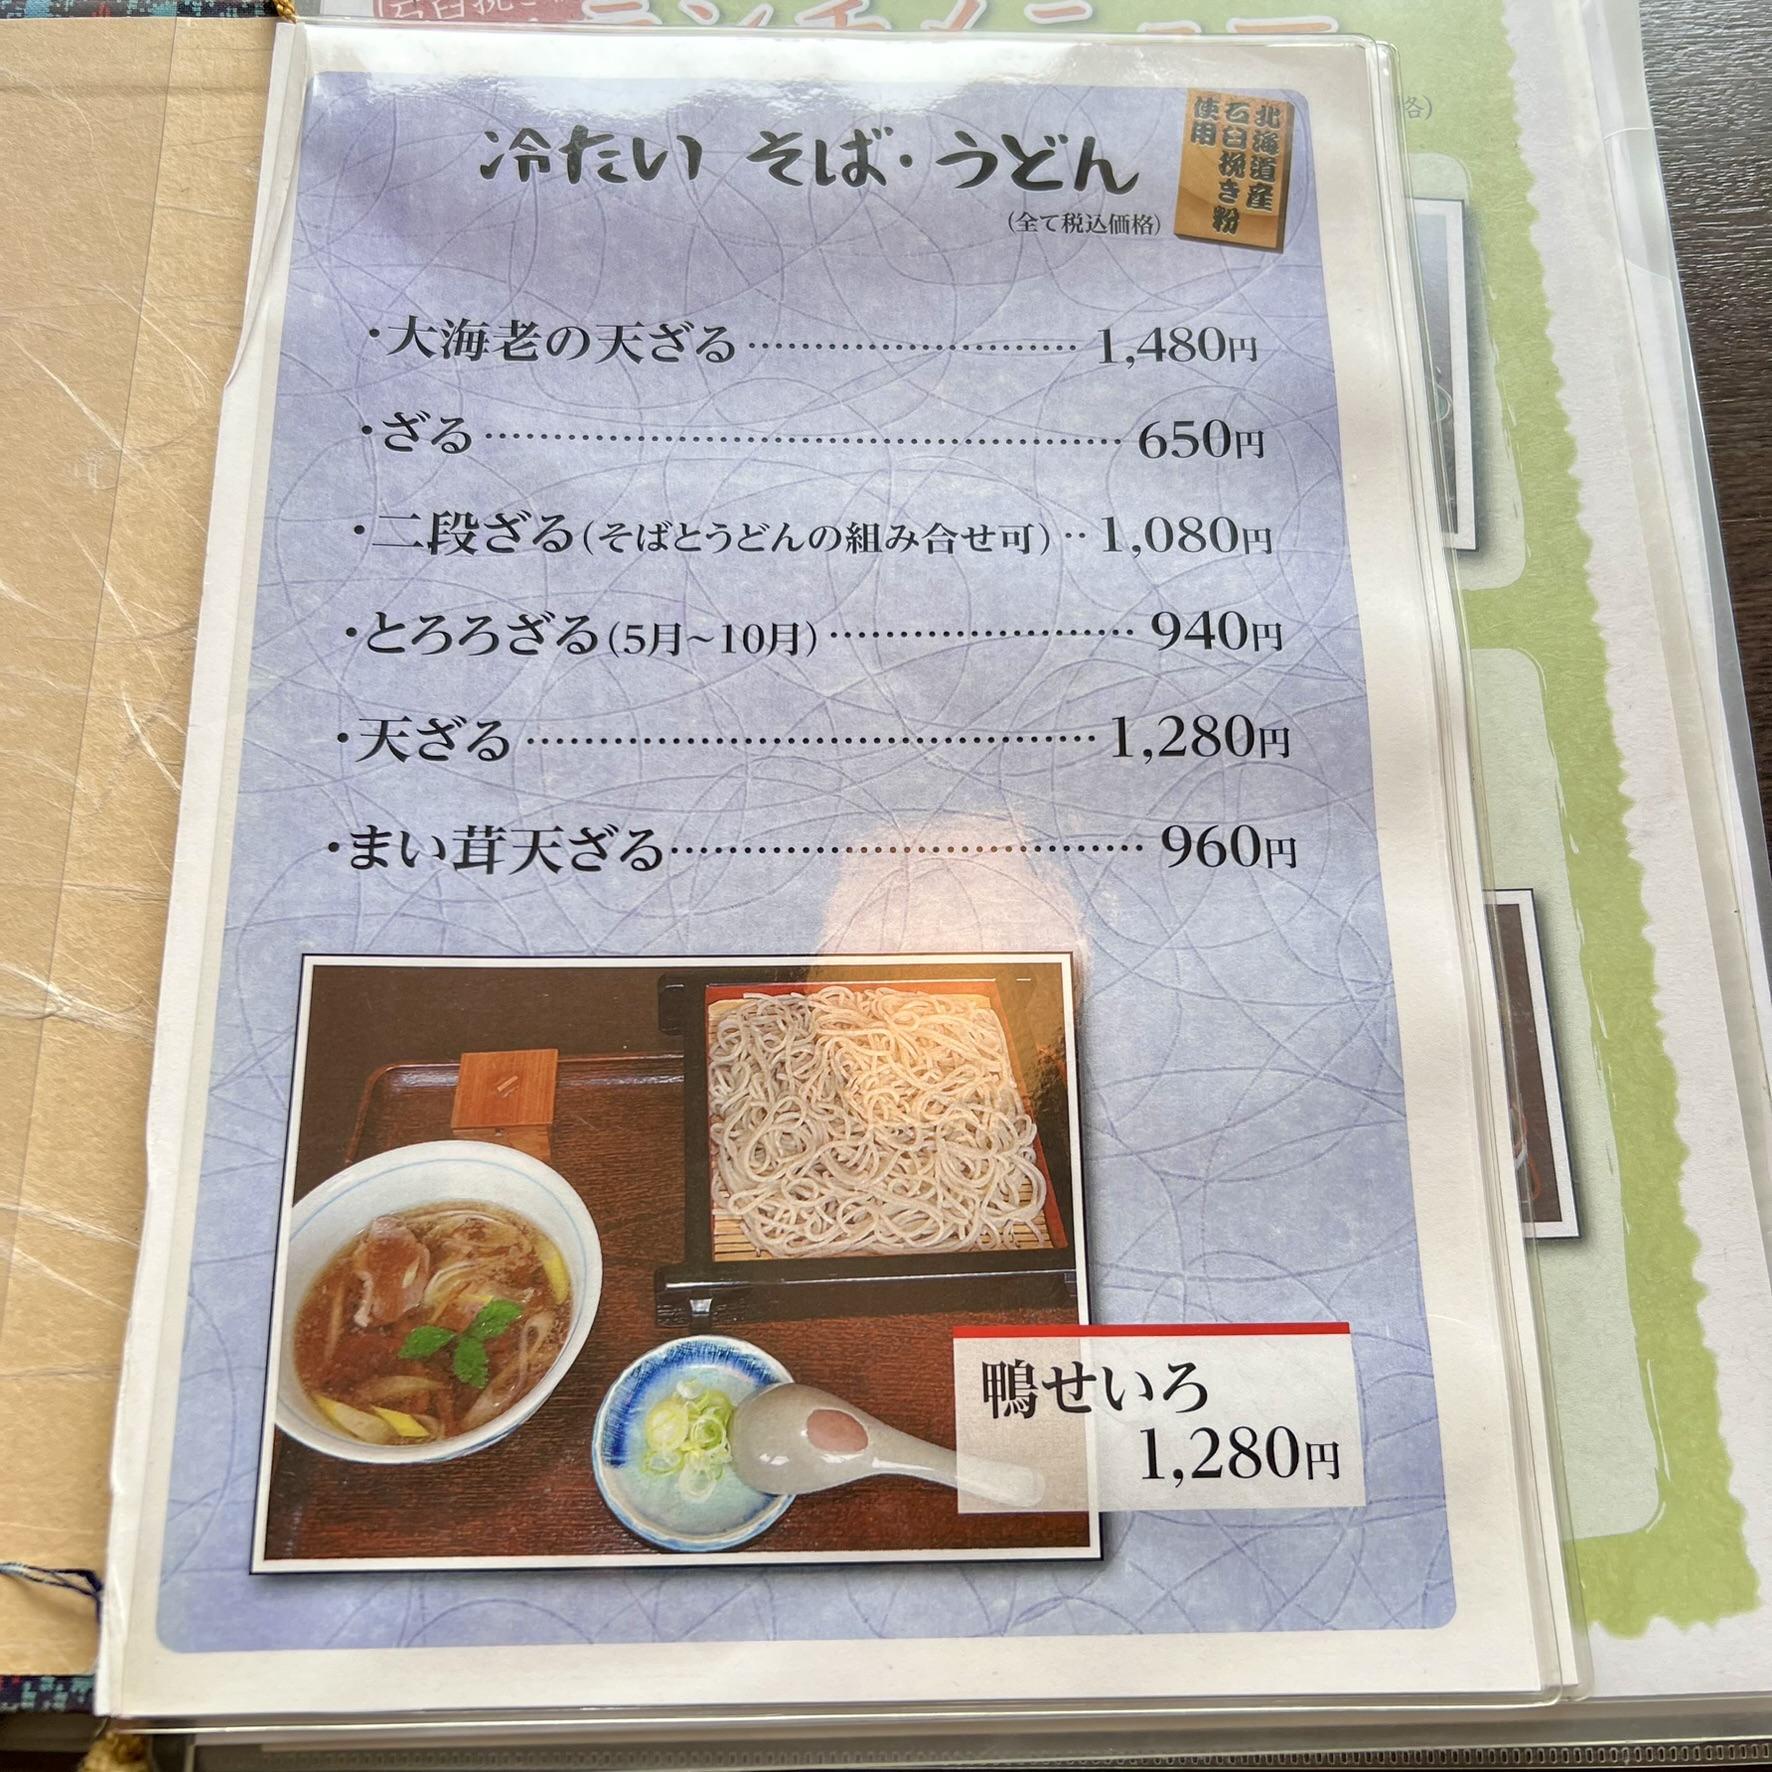 ランチメニュー
冷たい そば・うどん
北海道産
石臼挽き粉
使用
(全て税込価格)
・大海老の天ざる………………… 1,480円
・ざる………………………………… 650円
・二段ざる(そばとうどんの組み合せ可)‥1,080円
・とろろざる(5月~10月)………………… 940円
・天ざる………………………………1,280円
・まい茸天ざる…………………………… 960円
鴨せいろ
1,280円
格)